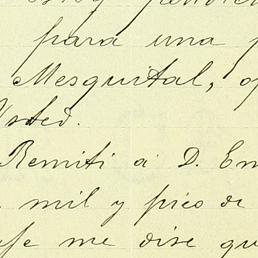 para una
Mesquital, o
Usted.
Remiti á D. Em
mil y pico de
me dise qu